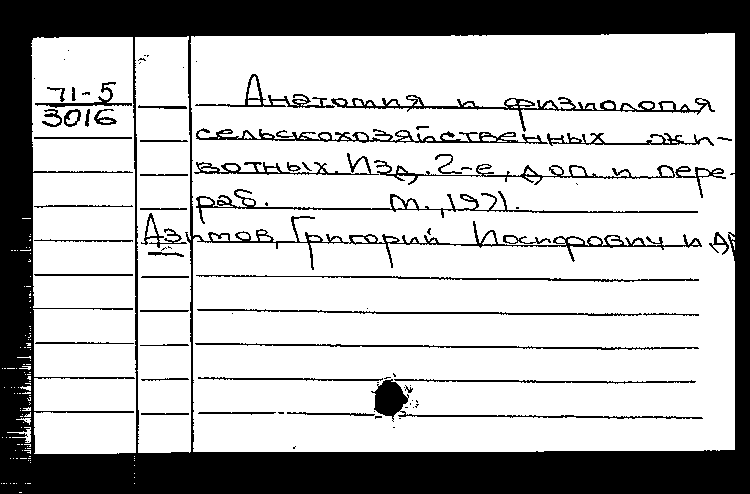 71-5
3016
Анатомия и физиология
сельскохозяйственных жи-
вотных. Изд. 2-е, доп. и пере-
раб. М., 1971.
Азимов, Григорий Иосифович и др